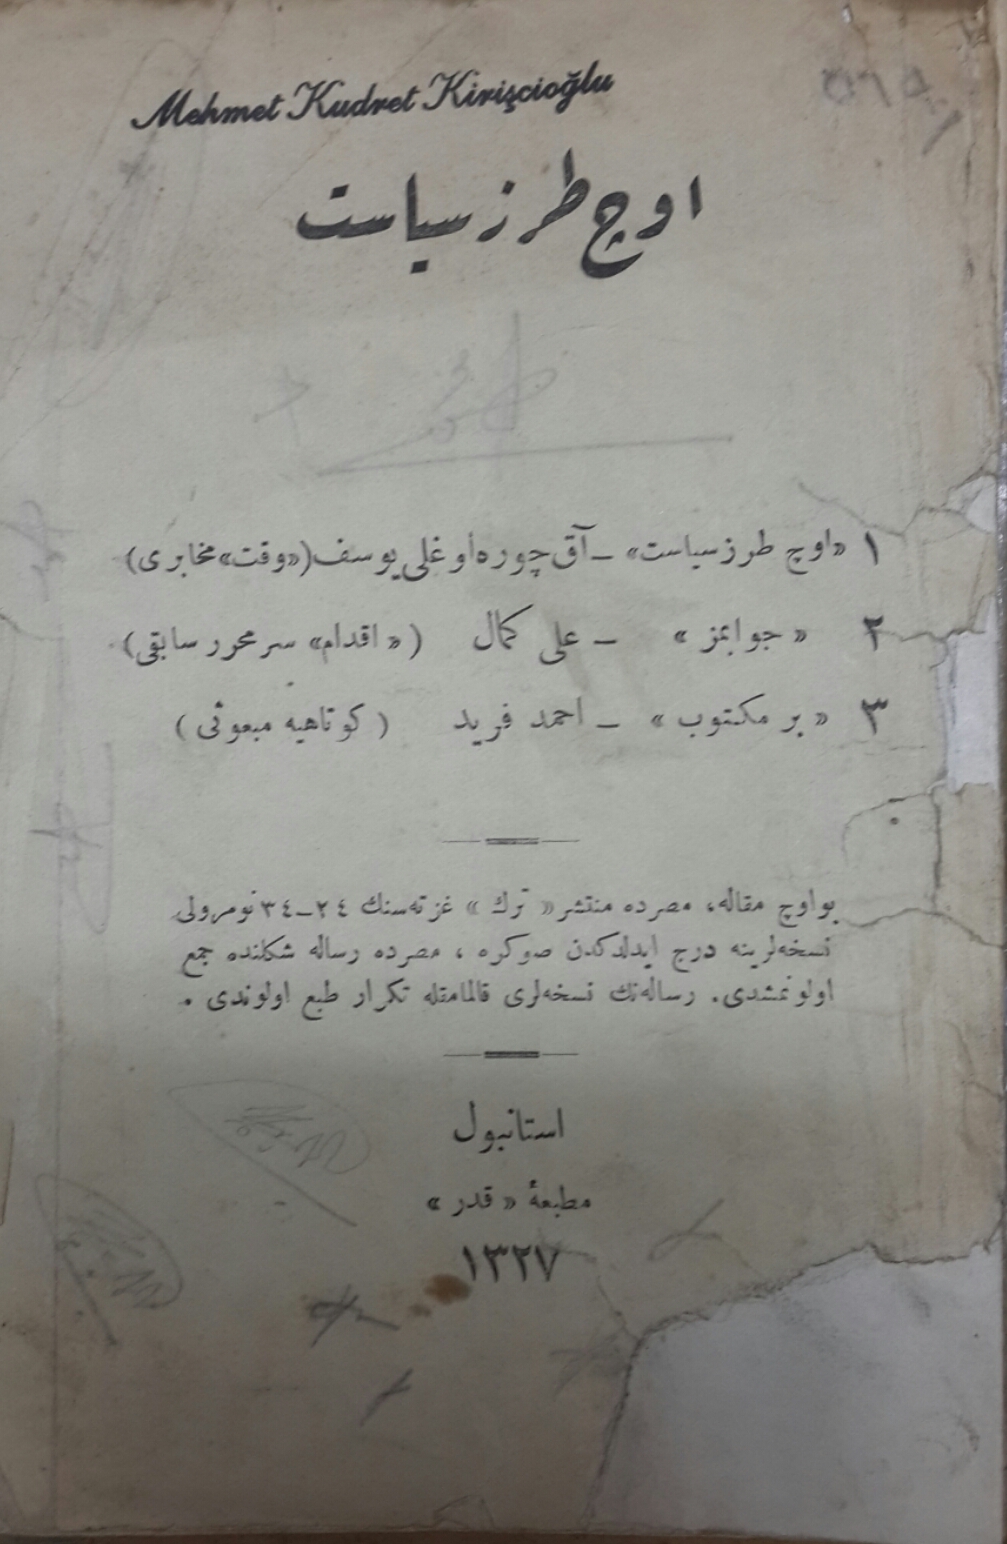 Mehmet Kudret Kirişcioğlu
اوچ طرز سیاست
١ «اوچ طرز سیاست» ـ آق چوره اوغلی یوسف («وقت» مخابری)
٢ «جوابمز» ـ علی کمال («اقدام» سر محرر سابقی)
٣ «بر مکتوب» ـ احمد فرید (کوتاهیه مبعوثی)
بو اوچ مقاله، مصرده منتشر «ترك» غزته‌سنك ٢٤ـ٣٤ نومرولی
نسخه‌لرینه درج ایدلدکدن صوکره ، مصرده رساله شکلنده جمع
اولونمشدی. رساله‌نك نسخه‌لری قالمامقله تکرار طبع اولوندی .
استانبول
مطبعهٔ «قدر»
١٣٢٧